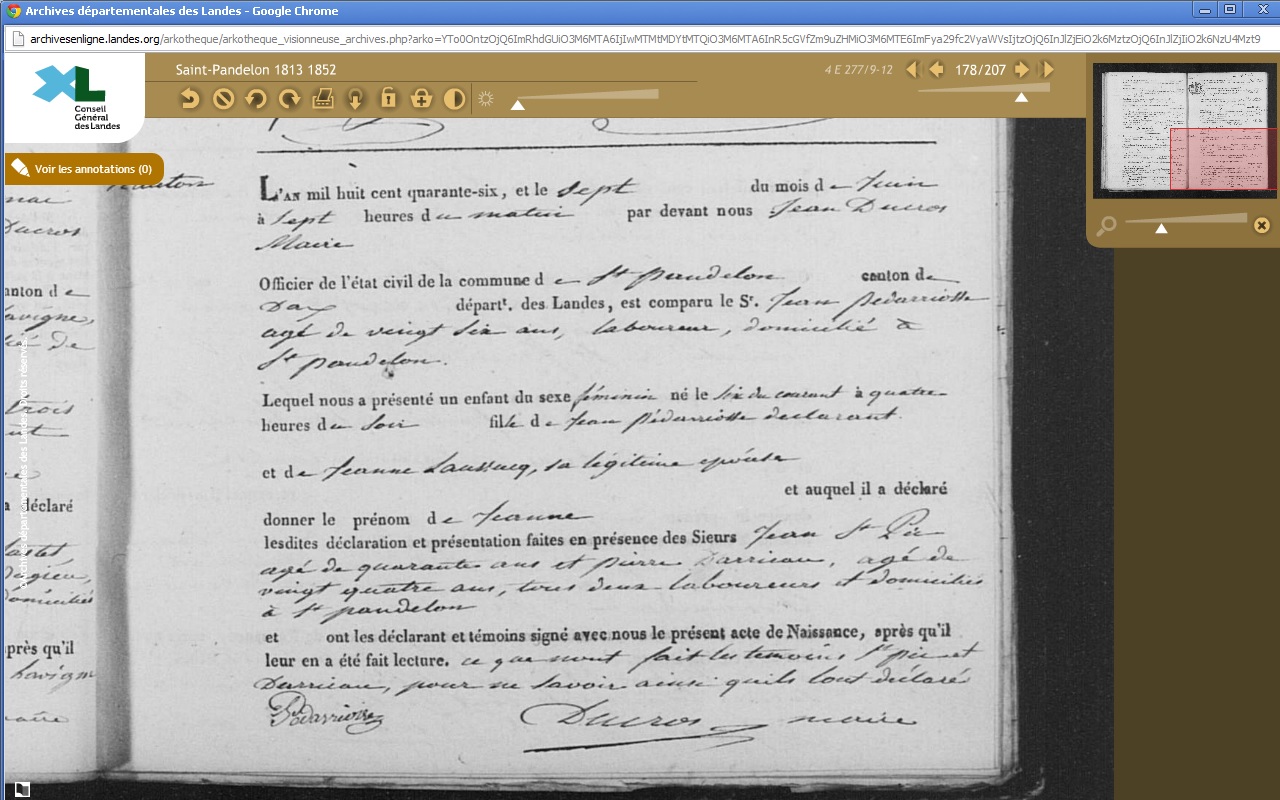 Archives départementales des Landes - Google Chrome
archivesenligne.landes.org/arkotheque/arkotheque_visionneuse_archives.php?arko=
Saint-Pandelon 1813 1852
4 E 277/9-12
178/207
Conseil
Général
des Landes
Voir les annotations (0)
L'AN mil huit cent quarante-six, et le sept du mois de Juin
à sept heures du matin par devant nous Jean Ducros
Maire
Officier de l'état civil de la commune de St pandelon canton de
Dax départt. des Landes, est comparu le Sr. Jean
agé de vingt six ans, laboureur, domicilié à
St pandelon.
Lequel nous a présenté un enfant du sexe féminin né le six du courant à quatre
heures du soir fille de Jean declarant.
et de Jeanne sa légitime epouse
et auquel il a déclaré
donner le prénom de Jeanne
lesdites déclaration et présentation faites en présence des Sieurs Jean St Pic
agé de quarante ans et pierre Darricau, agé de
vingt quatre ans, tous deux laboureurs et domiciliés
à St pandelon
et ont les déclarant et témoins signé avec nous le présent acte de Naissance, après qu'il
leur en a été fait lecture. ce que nont fait les temoins St pic et
Darricau, pour ne savoir ainsi quils lont déclaré
Ducros maire
anton de
avigne,
trois
a déclaré
domiciliés
près qu'il